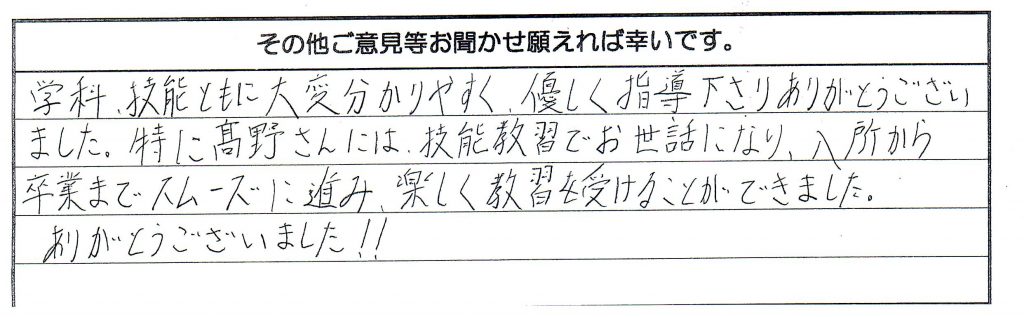 その他ご意見等お聞かせ願えれば幸いです。
学科、技能ともに大変分かりやすく、優しく指導下さりありがとうござい
ました。特に髙野さんには、技能教習でお世話になり、入所から
卒業までスムーズに進み、楽しく教習を受けることができました。
ありがとうございました!!